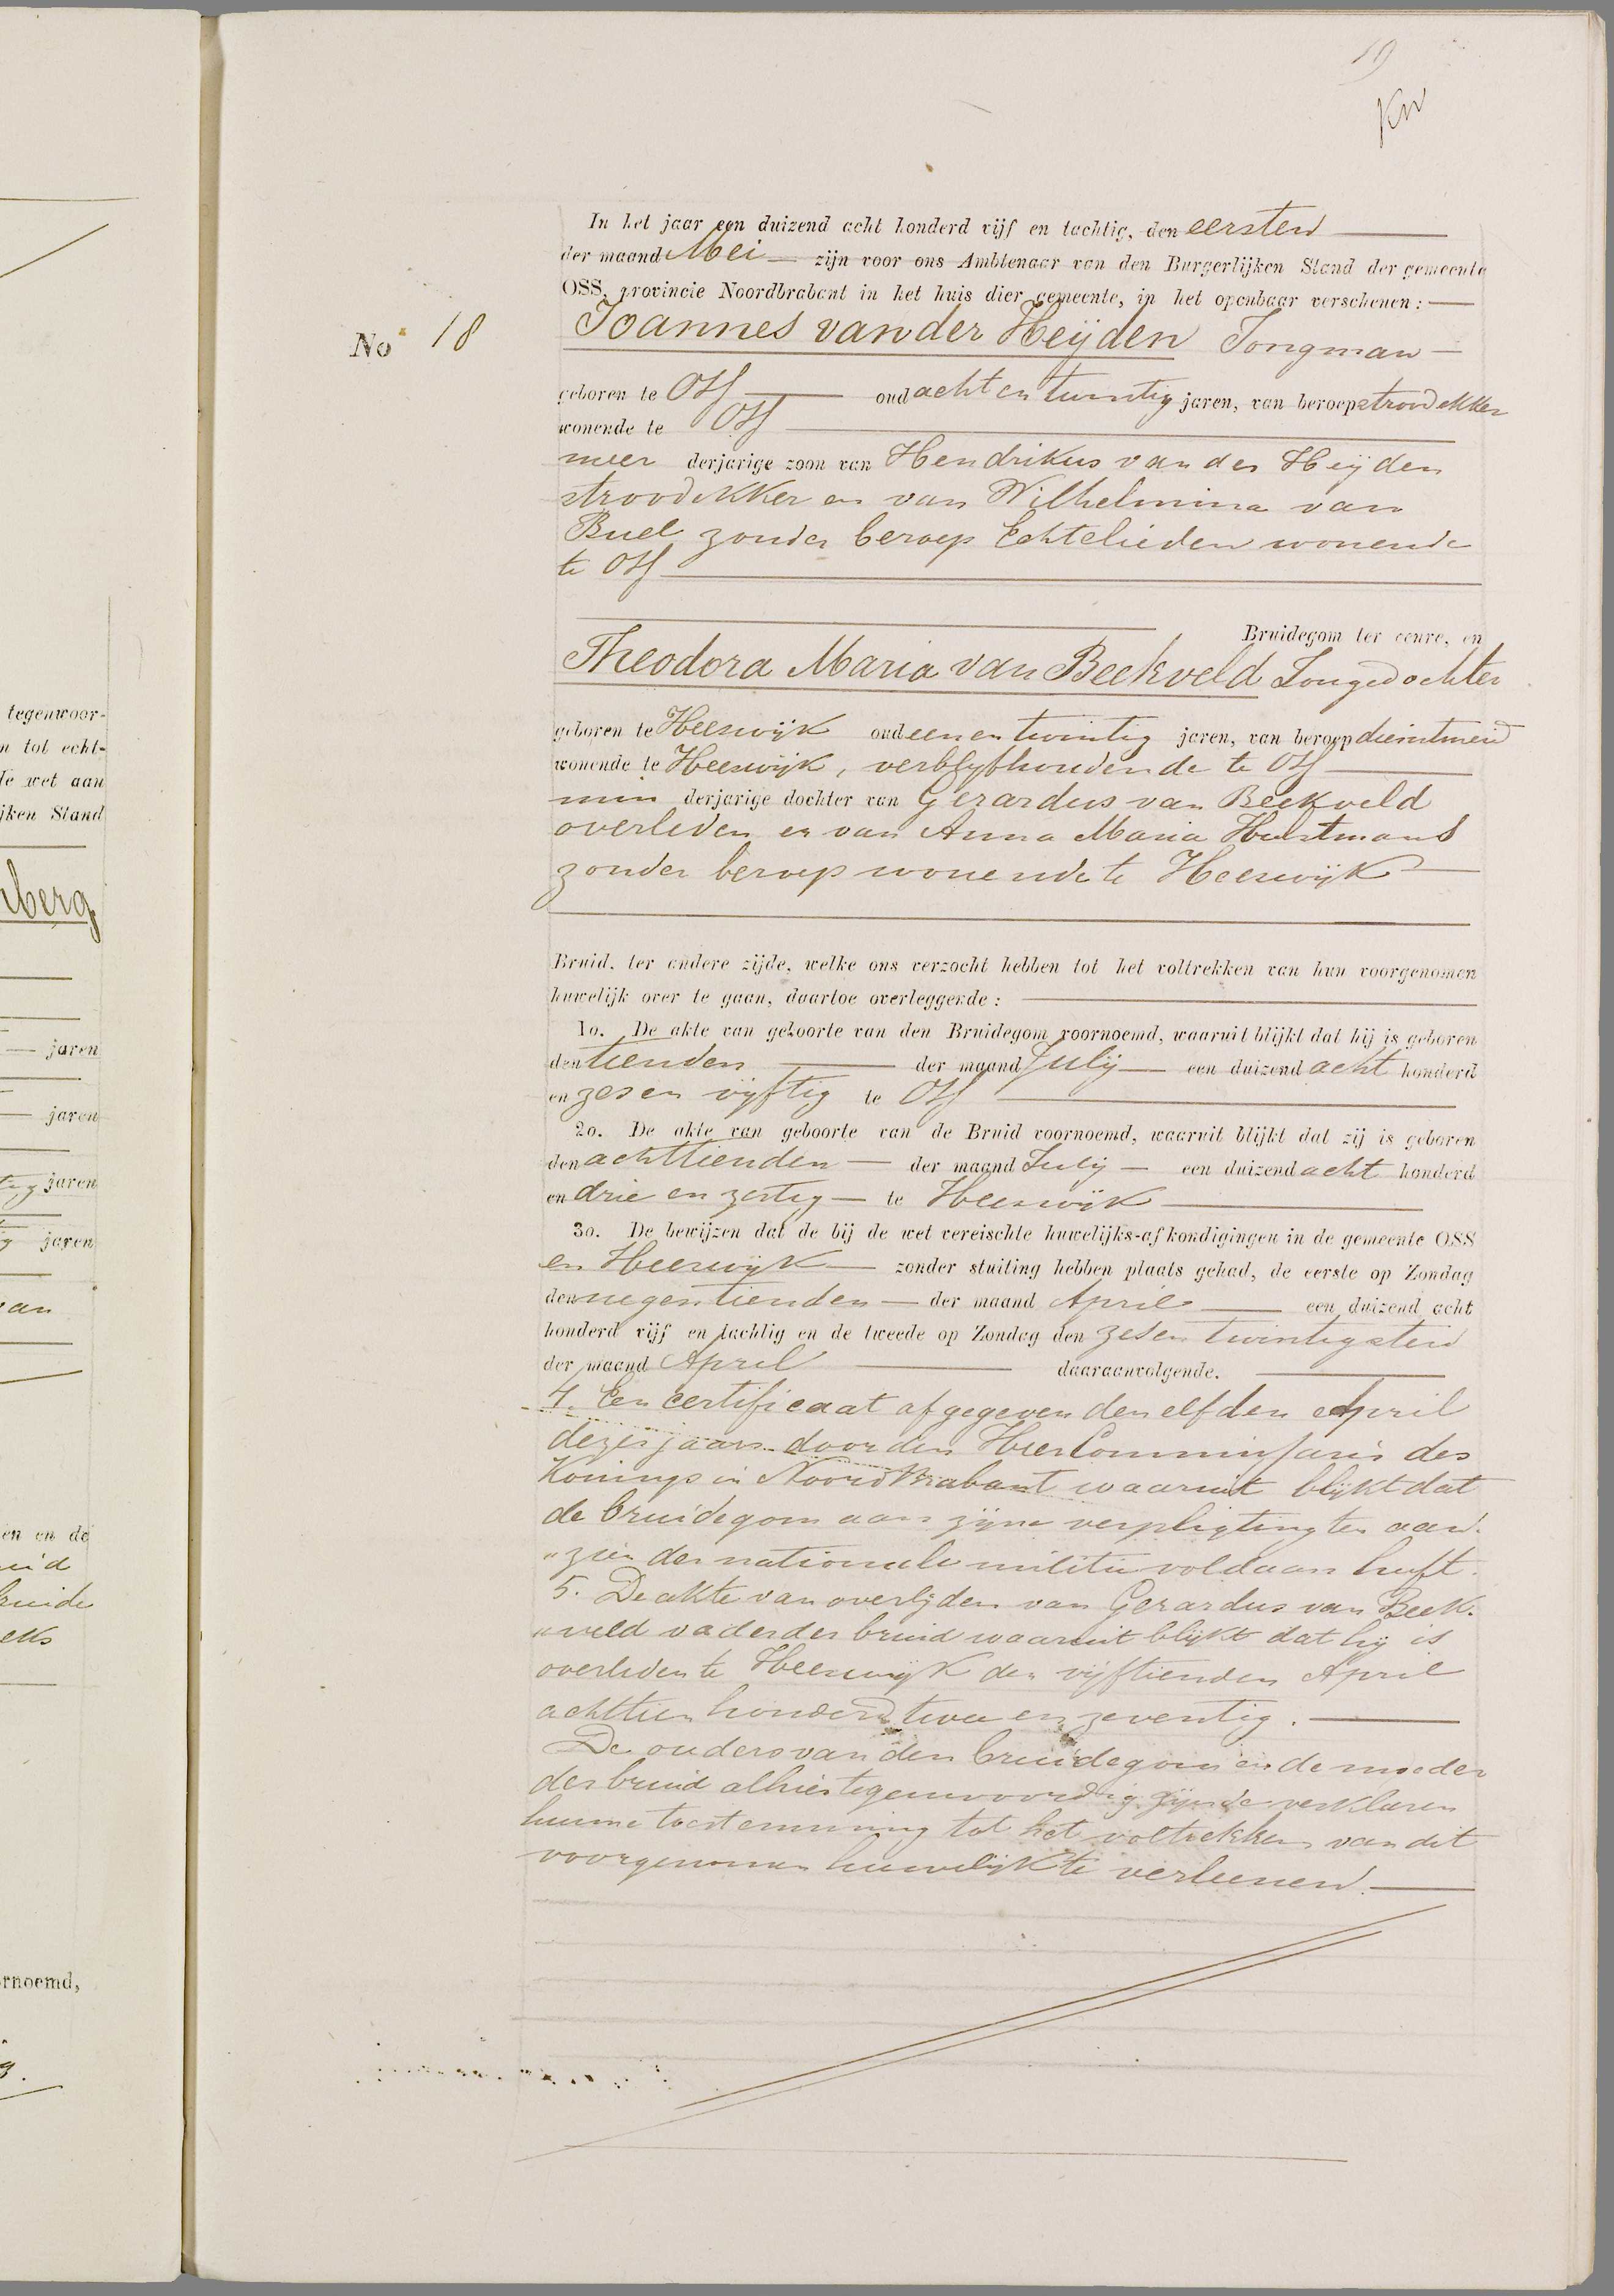 19
KW
In het jaar een duizend acht honderd vijf en tachtig, den eersten
der maand Mei zijn voor ons Ambtenaar van den Burgerlijken Stand der gemeente
OSS, provincie Noordbrabant in het huis dier gemeente, in het openbaar verschenen:
No 18
Joannes van der Heijden Jongman
geboren te Oss oud acht en twintig jaren, van beroep stroodekker
wonende te Oss
meer derjarige zoon van Hendrikus van der Heijden
stroodekker en van Wilhelmina van
Buel zonder beroep Echtelieden wonende
te Oss
Bruidegom ter eenre, en
Theodora Maria van Beekveld Jongedochter
geboren te Heeswijk oud een en twintig jaren, van beroep dienstmeid
wonende te Heeswijk, verblyfhoudende te Oss
min derjarige dochter van Gerardus van Beekveld
overleden en van Anna Maria Hulstmans
zonder beroep wonende te Heeswijk
Bruid, ter andere zijde, welke ons verzocht hebben tot het voltrekken van hun voorgenomen
huwelijk over te gaan, daartoe overleggende:
1o. De akte van geboorte van den Bruidegom voornoemd, waaruit blijkt dat hij is geboren
den tienden der maand Julij een duizend acht honderd
en zes en vijftig te Oss
2o. De akte van geboorte van de Bruid voornoemd, waaruit blijkt dat zij is geboren
den achttienden der maand Julij een duizend acht honderd
en drie en zestig te Heeswijk
3o. De bewijzen dat de bij de wet vereischte huwelijks-afkondigingen in de gemeente OSS
en Heeswijk zonder stuiting hebben plaats gehad, de eerste op Zondag
den negentienden der maand April een duizend acht
honderd vijf en tachtig en de tweede op Zondag den zes en twintigsten
der maand April daaraanvolgende.
4. Een certificaat afgegeven den elfden April
dezes jaars door den Heer Commissaris des
Konings in Noord Brabant waaruit blijkt dat
de bruidegom aan zijne verpligting ten aan-
„zien der nationale militie voldaan heeft.
5. De akte van overlijden van Gerardus van Beek-
„veld vader der bruid waaruit blijkt dat hij is
overleden te Heeswijk den vijftienden April
achttien honderd twee en zeventig.
De ouders van den bruidegom en de moeder
der bruid alhier tegenwoordig zijnde verklaren
hunne toestemming tot het voltrekken van dit
voorgenomen huwelijk te verleenen.
tegenwoor-
n tot echt-
de wet aan
jken Stand
berg
jaren
jaren
tig jaren
jaren
van
en en de
eid
bruide
eks
ornoemd,